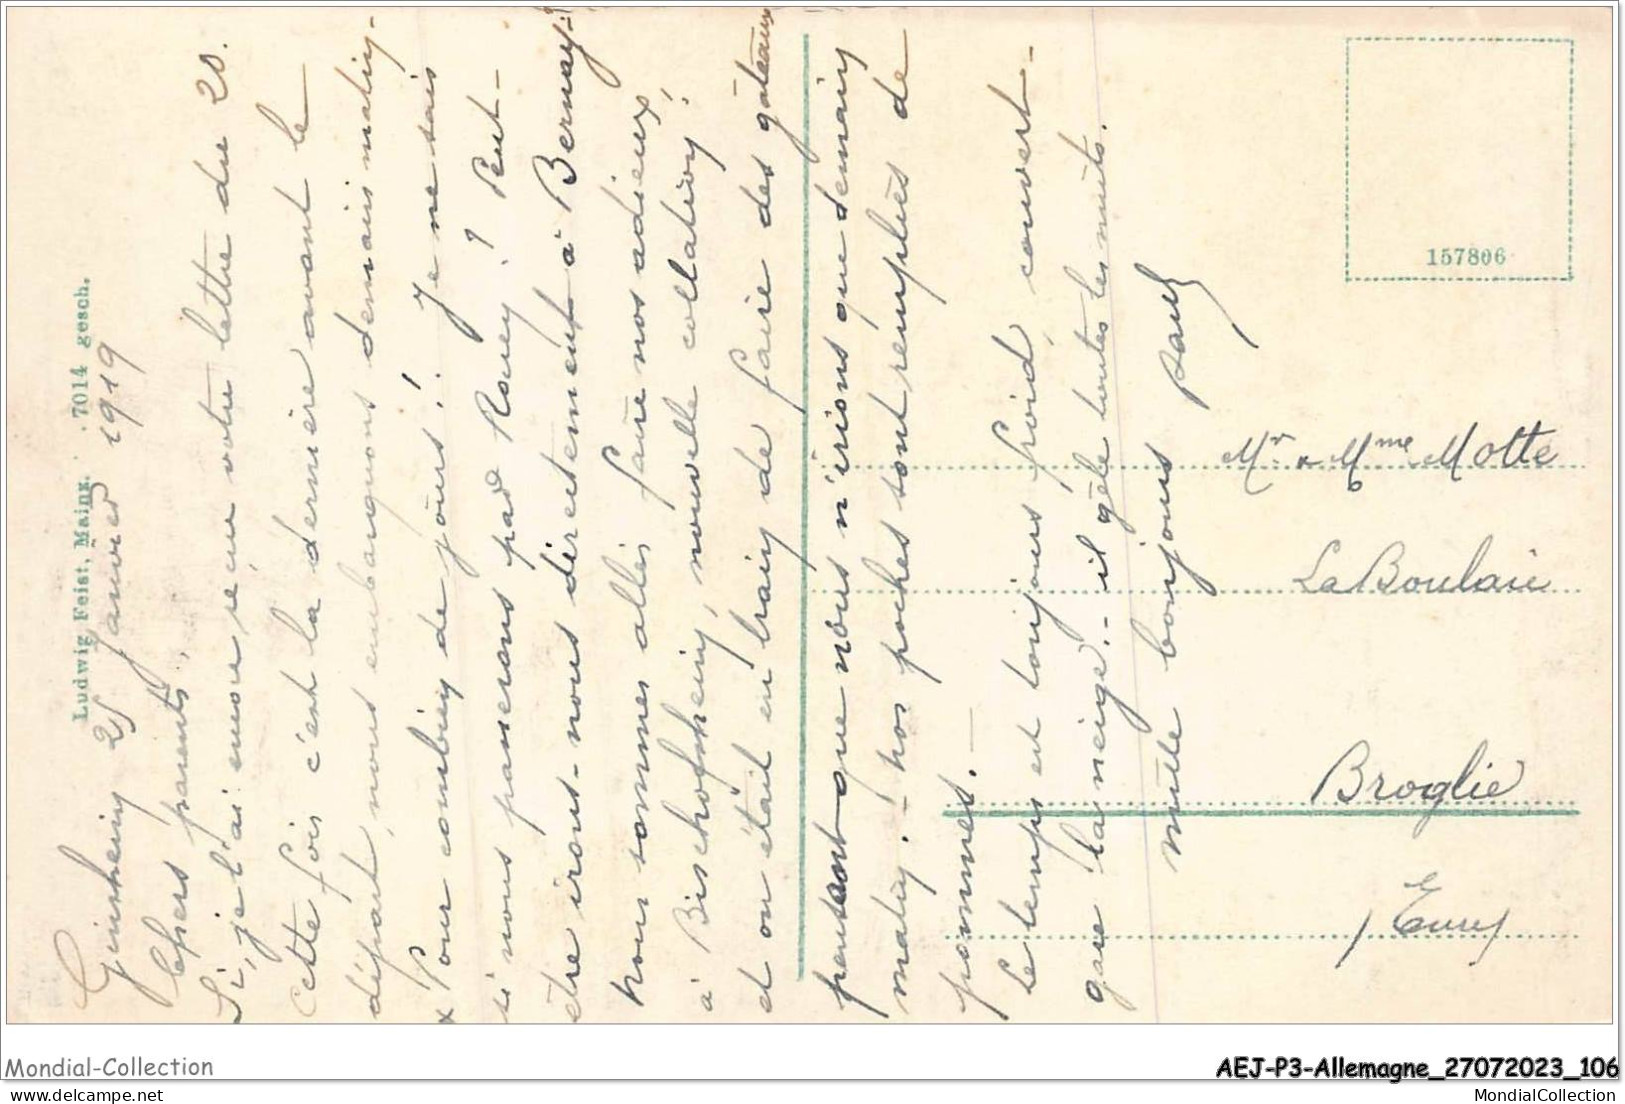 Ludwig Feist, Mainz. 7014 gesch.
Ginsheim 25 janvier 1919
Chers parents,
Si, je l'ai encore reçue votre lettre du 20.
Cette fois c'est la dernière avant le
départ, nous embarquons demain matin.
Pour combien de jours! Je ne sais
si nous passerons par Rouen? Peut-
être irons-nous directement à Bernay.
Nous sommes allés faire nos adieux
à Bischofsheim, nouvelle collation!
et on était en train de faire des gâteaux
pensant que nous n'irions que demain
matin. - Nos poches sont remplies de
pommes. -
Le temps est toujours froid, couvert -
gare la neige. - il gèle toutes les nuits.
mille bonjours
157806
Mr & Mme Motte
La Boulaie
Broglie
(Eure)
Mondial-Collection
AEJ-P3-Allemagne_27072023_106
www.delcampe.net
MondialCollection